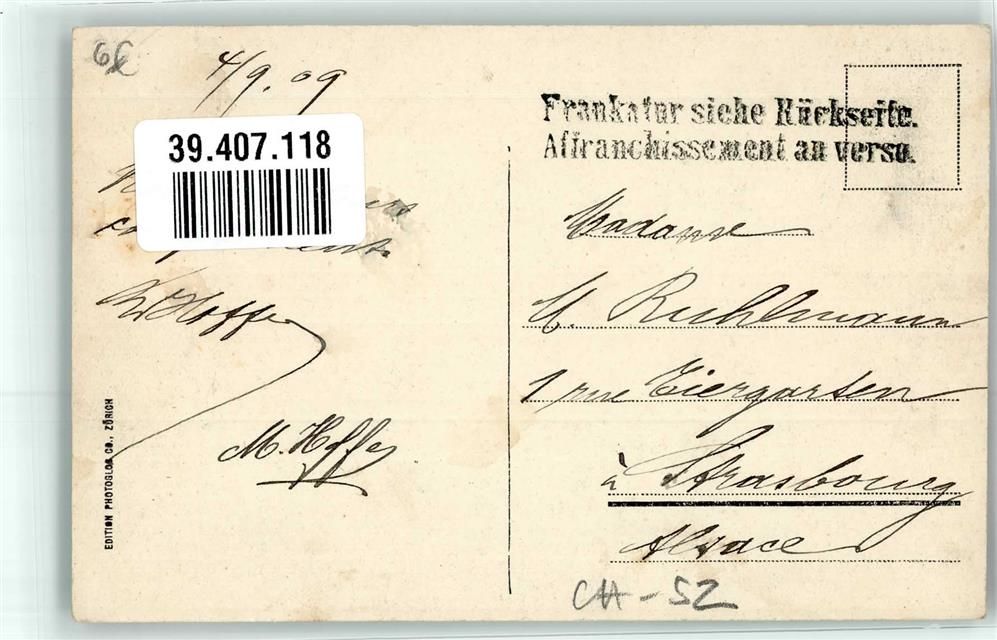 4/9. 09
39.407.118
Hoffer
M. Hoffer
EDITION PHOTOGLOB CO., ZÜRICH
Frankatur siehe Rückseite.
Affranchissement au verso.
Madame
M. Ruhlmann
1 rue Tiergarten
à Strasbourg
Alsace
CH-SZ